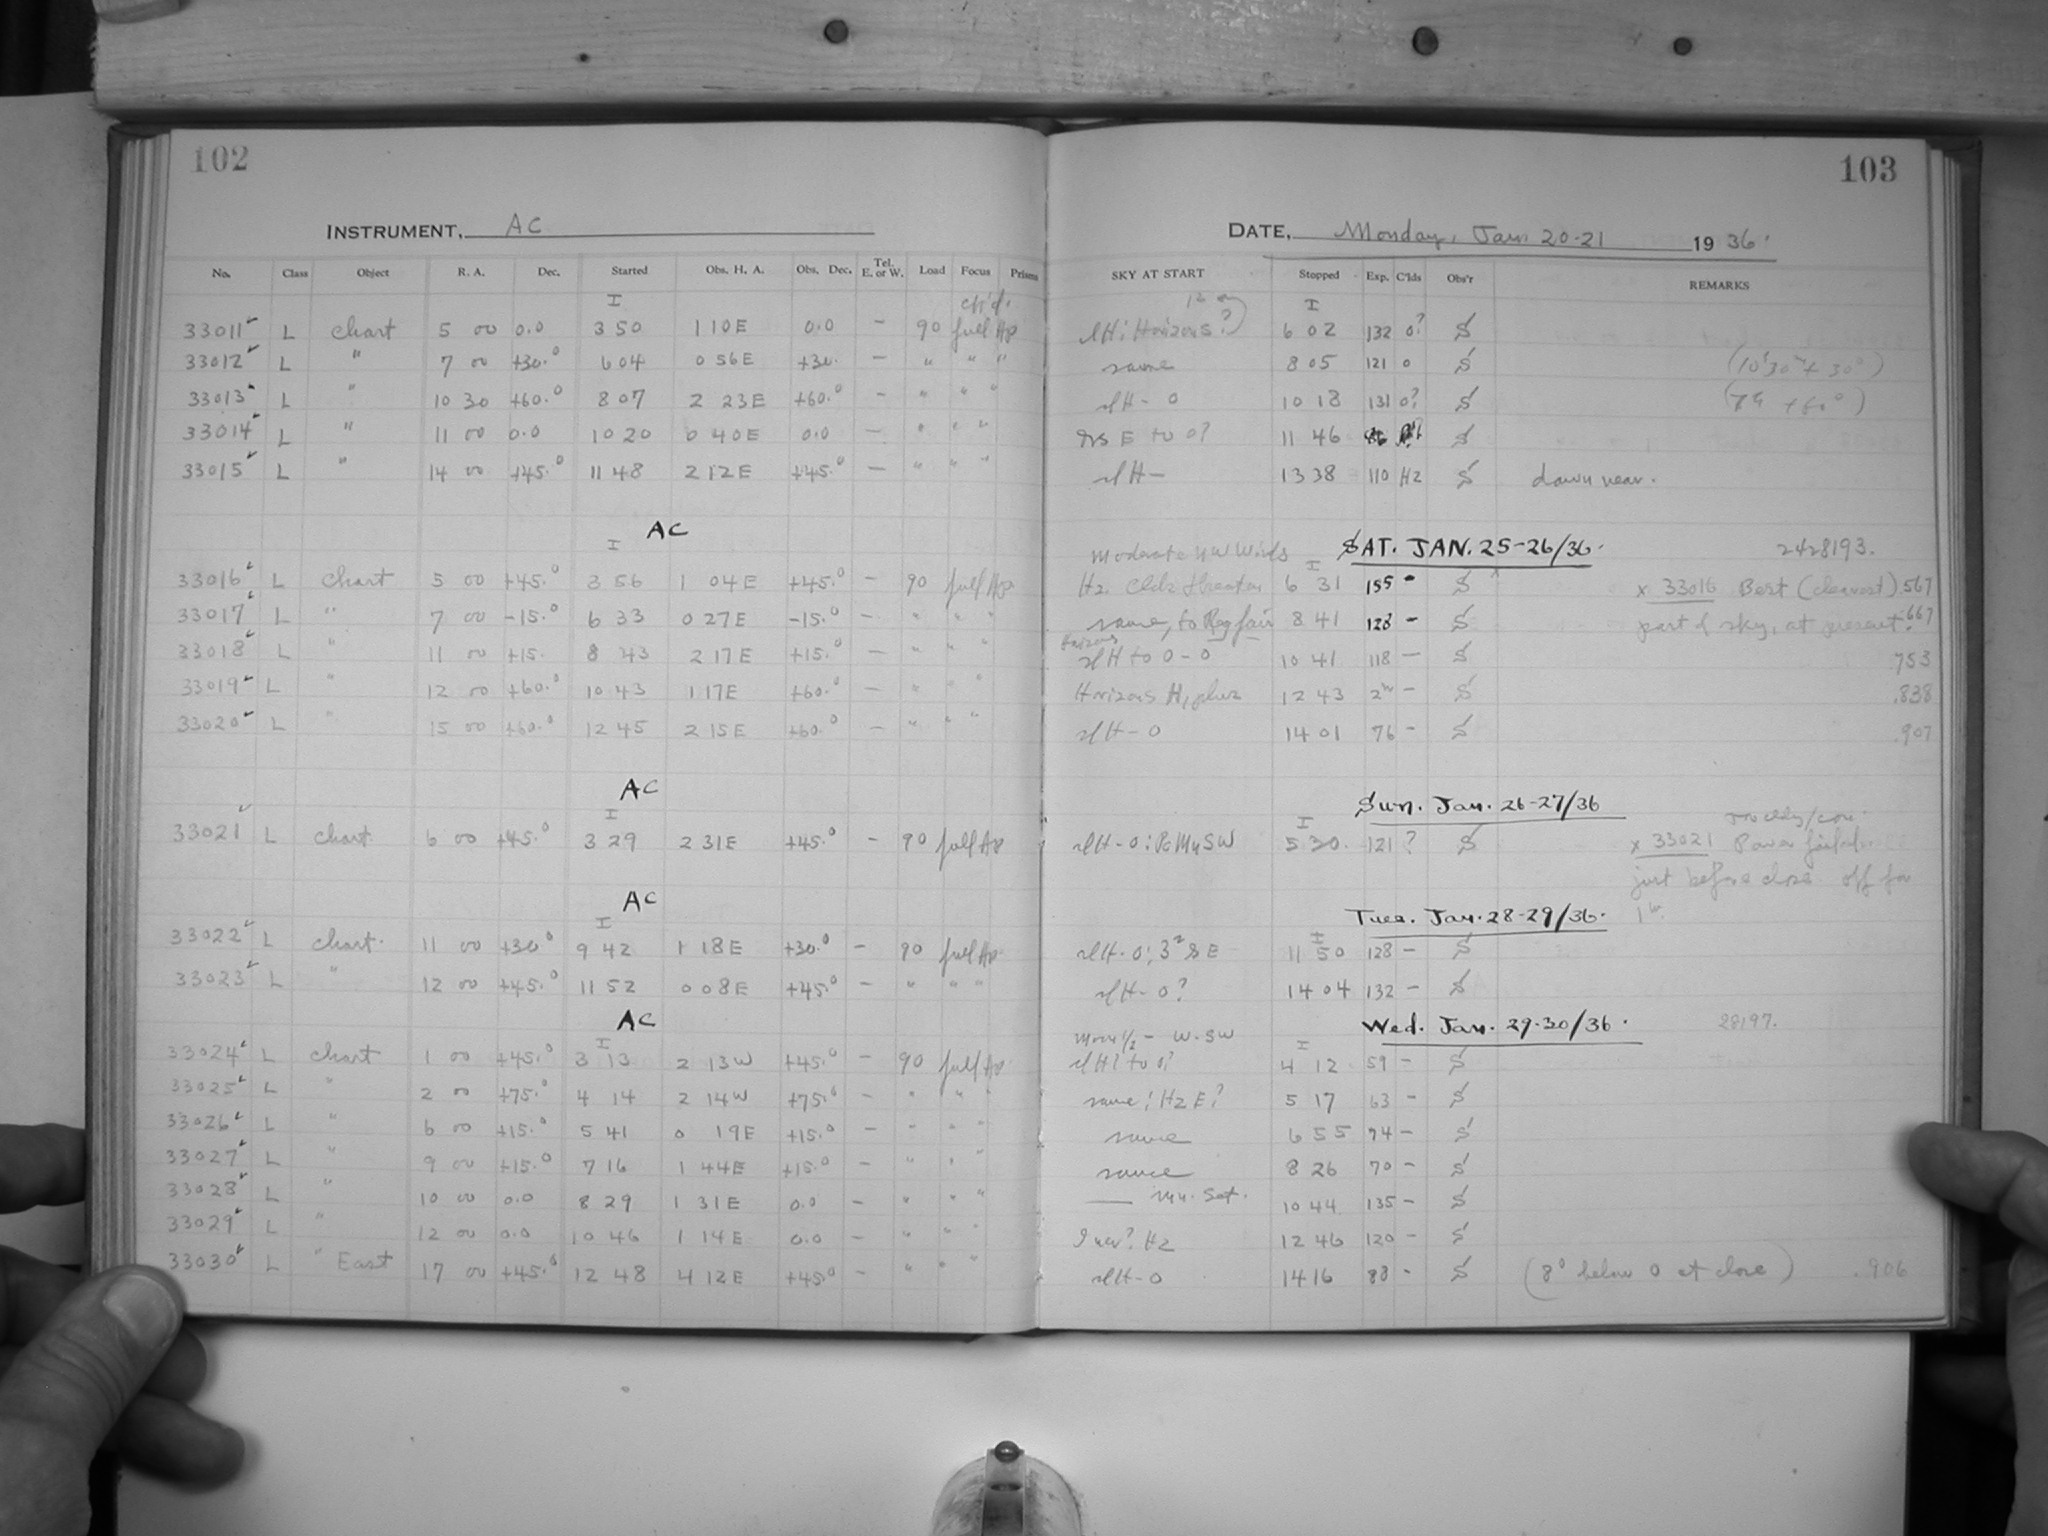 102
INSTRUMENT, AC
No. Class Object R. A. Dec. Started Obs. H. A. Obs. Dec. Tel. E. or W. Load Focus Prisms
I
33011 L chart 5 00 0.0 3 50 1 10 E 0.0 – 90 full Ap
33012 L " 7 00 +30.0 6 04 0 56 E +30. – " " "
33013 L " 10 30 +60.0 8 07 2 23 E +60.0 – " " "
33014 L " 11 00 0.0 10 20 0 40 E 0.0 – " " "
33015 L " 14 00 +45.0 11 48 2 12 E +45.0 – " " "
AC
I
33016 L chart 5 00 +45.0 3 56 1 04 E +45.0 – 90 full Ap
33017 L " 7 00 -15.0 6 33 0 27 E -15.0 – " " "
33018 L " 11 00 +15. 8 43 2 17 E +15.0 – " " "
33019 L " 12 00 +60.0 10 43 1 17 E +60.0 – " " "
33020 L " 15 00 +60.0 12 45 2 15 E +60.0 – " " "
AC
I
33021 L chart. 6 00 +45.0 3 29 2 31 E +45.0 – 90 full Ap
AC
I
33022 L chart. 11 00 +30.0 9 42 1 18 E +30.0 – 90 full Ap
33023 L " 12 00 +45.0 11 52 0 08 E +45.0 – " " "
AC
I
33024 L chart 1 00 +45.0 3 13 2 13 W +45.0 – 90 full Ap
33025 L " 2 00 +75.0 4 14 2 14 W +75.0 – " " "
33026 L " 6 00 +15.0 5 41 0 19 E +15.0 – " " "
33027 L " 9 00 +15.0 7 16 1 44 E +15.0 – " " "
33028 L " 10 00 0.0 8 29 1 31 E 0.0 – " " "
33029 L " 12 00 0.0 10 46 1 14 E 0.0 – " " "
33030 L " East 17 00 +45.0 12 48 4 12 E +45.0 – " " "
103
DATE, Monday, Jan 20-21 1936.
SKY AT START Stopped Exp. C'lds Obs'r REMARKS
I
Horizons? 6 02 132 0? S
same 8 05 121 0 S (10h30m + 30°)
clH - 0 10 18 131 0? S (7h +60°)
E to 0? 11 46 86 S
clH - 13 38 110 Hz S dawn near.
SAT. JAN. 25-26/36. 2428193.
Moderate NW Winds
I
Hz. Clds threaten 6 31 155 – S x 33016 Best (clearest) .567
same, to Reg fair 8 41 128 – S part of sky, at present. .667
Horizons
clH to 0 - 0 10 41 118 – S .753
Horizons H, plus 12 43 2h – S .838
clH - 0 14 01 76 – S .907
Sun. Jan. 26-27/36
I
clH - 0: SW 5 30. 121 ? S x 33021 Power failed
just before close off for
1h.
Tues. Jan. 28-29/36.
I
clH - 0; E 11 50 128 – S
clH - 0? 14 04 132 – S
Wed. Jan. 29-30/36. 28197.
Moon 1/2 – W. SW
I
clH? to 0? 4 12 59 – S
same; Hz E? 5 17 63 – S
same 6 55 74 – S
same 8 26 70 – S
— Mn. Set. 10 44 135 – S
Hz 12 46 120 – S
clH - 0 14 16 88 – S (8° below 0 at close) .906